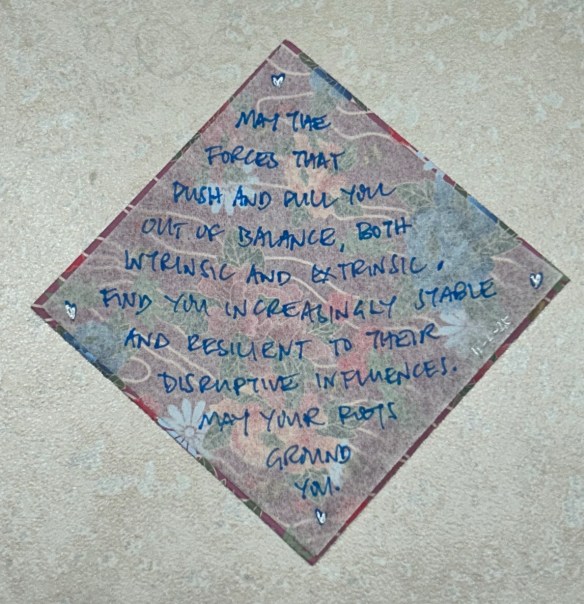 MAY THE
FORCES THAT
PUSH AND PULL YOU
OUT OF BALANCE, BOTH
INTRINSIC AND EXTRINSIC,
FIND YOU INCREASINGLY STABLE
AND RESILIENT TO THEIR
DISRUPTIVE INFLUENCES.
MAY YOUR ROOTS
GROUND
YOU.